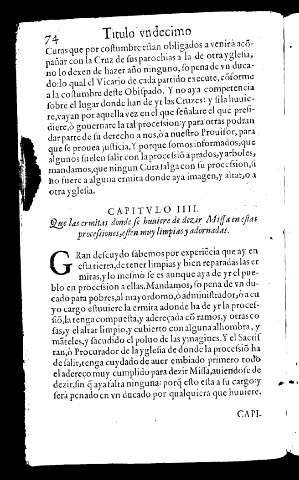 74 Titulo vndecimo
Curas que por costumbre estan obligados a venir a acõ-
pañar con la Cruz de sus parochias a la de otra yglesia,
no lo dexen de hazer año ninguno, so pena de vn duca-
do: lo qual el Vicario de cada partido execute, cõforme
a la costumbre deste Obispado. Y no aya competencia
sobre el lugar donde han de yr las Cruzes: y si la huuie-
re, vayan por aquella vez en el que señalare el que presi-
diere, ò gouernare la tal procession: y para otras podran
dar parte de su derecho a nos, ò a nuestro Prouisor, para
que se prouea justicia. Y porque somos informados, que
algunos suelen salir con la processiõ a prados, y arboles,
mandamos, que ningun Cura salga con su procession, si
no fuere a alguna ermita donde aya imagen, y altar, o a
otra yglesia.
CAPITVLO IIII.
Que las ermitas donde se huuiere de dezir Missa en estas
processiones, estén muy limpias y adornadas.
GRan descuydo sabemos por experiẽcia que ay en
esta tierra, de tener limpias y bien reparadas las er
mitas, y lo mesmo se es aunque aya de yr el pue-
blo en procession a ellas. Mandamos, so pena de vn du-
cado para pobres, al mayordomo, ò administrador, ò a cu
yo cargo estuuiere la ermita adonde ha de yr la proces-
siõ, la tenga compuesta, y adereçada cõ ramos, y otras co
sas, y el altar limpio, y cubierto con alguna alhombra, y
mãteles, y sacudido el poluo de las ymagines. Y el Sacris
tan, ò Procurador de la yglesia de donde la processiõ ha
de salir, tenga cuydado de auer embiado primero todo
el adereço muy cumplido para dezir Missa, auiendose de
dezir, sin q̃ aya falta ninguna: porq̃ esto esta a su cargo: y
será penado en vn ducado por qualquiera que huuiere.
CAPI-